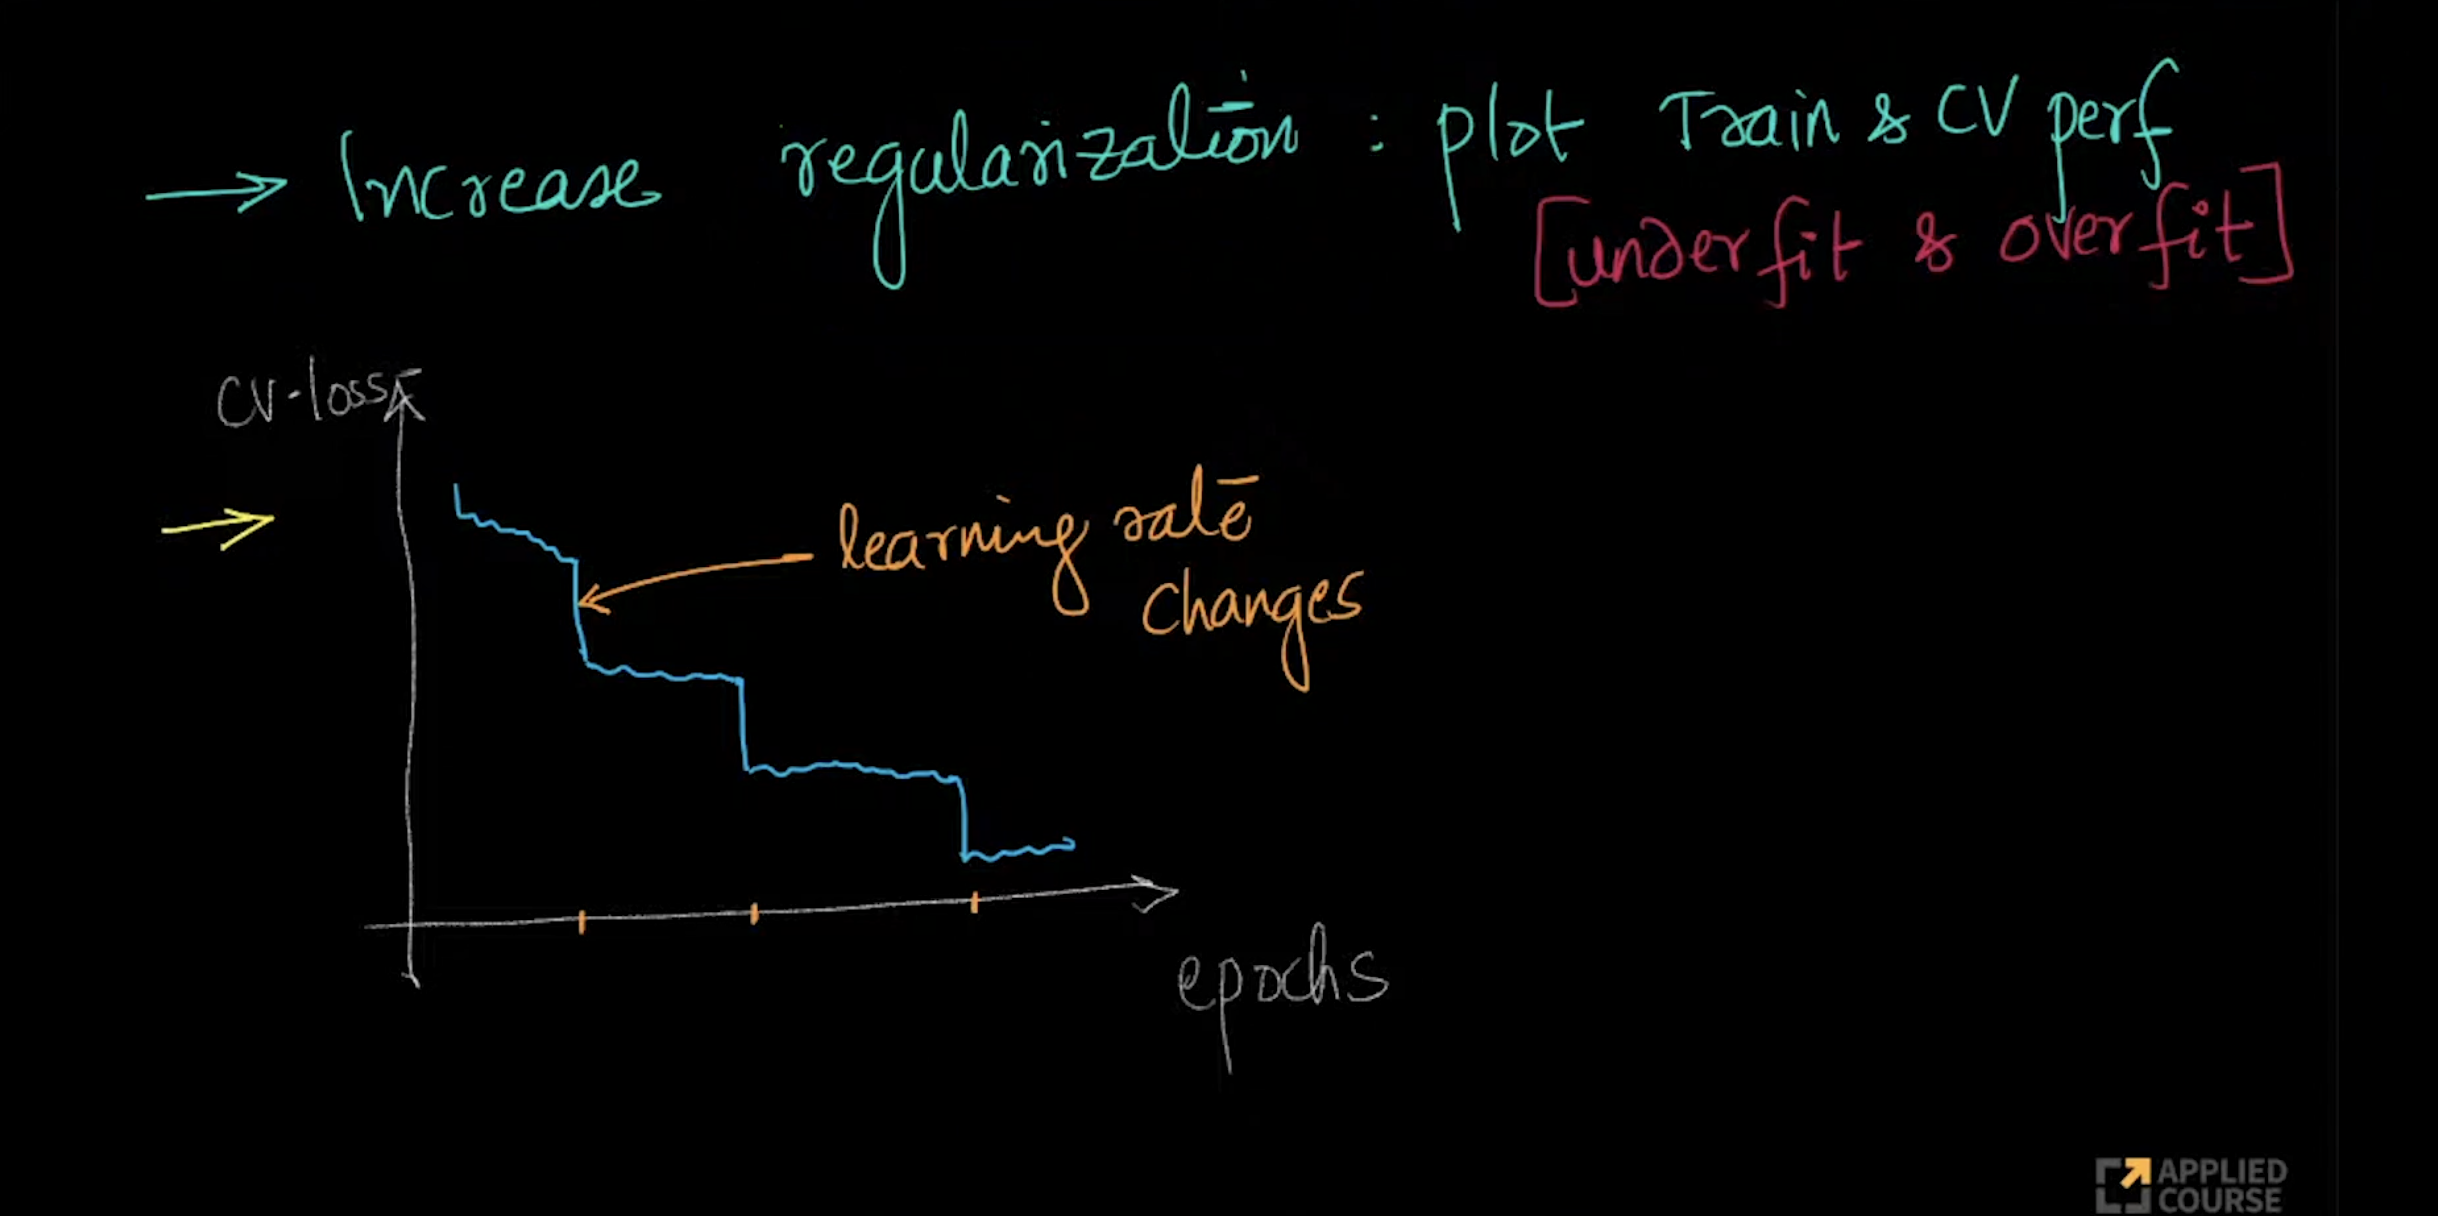 → Increase regularization : plot Train & CV perf
[underfit & overfit]
CV-loss
learning rate
changes
epochs
APPLIED
COURSE